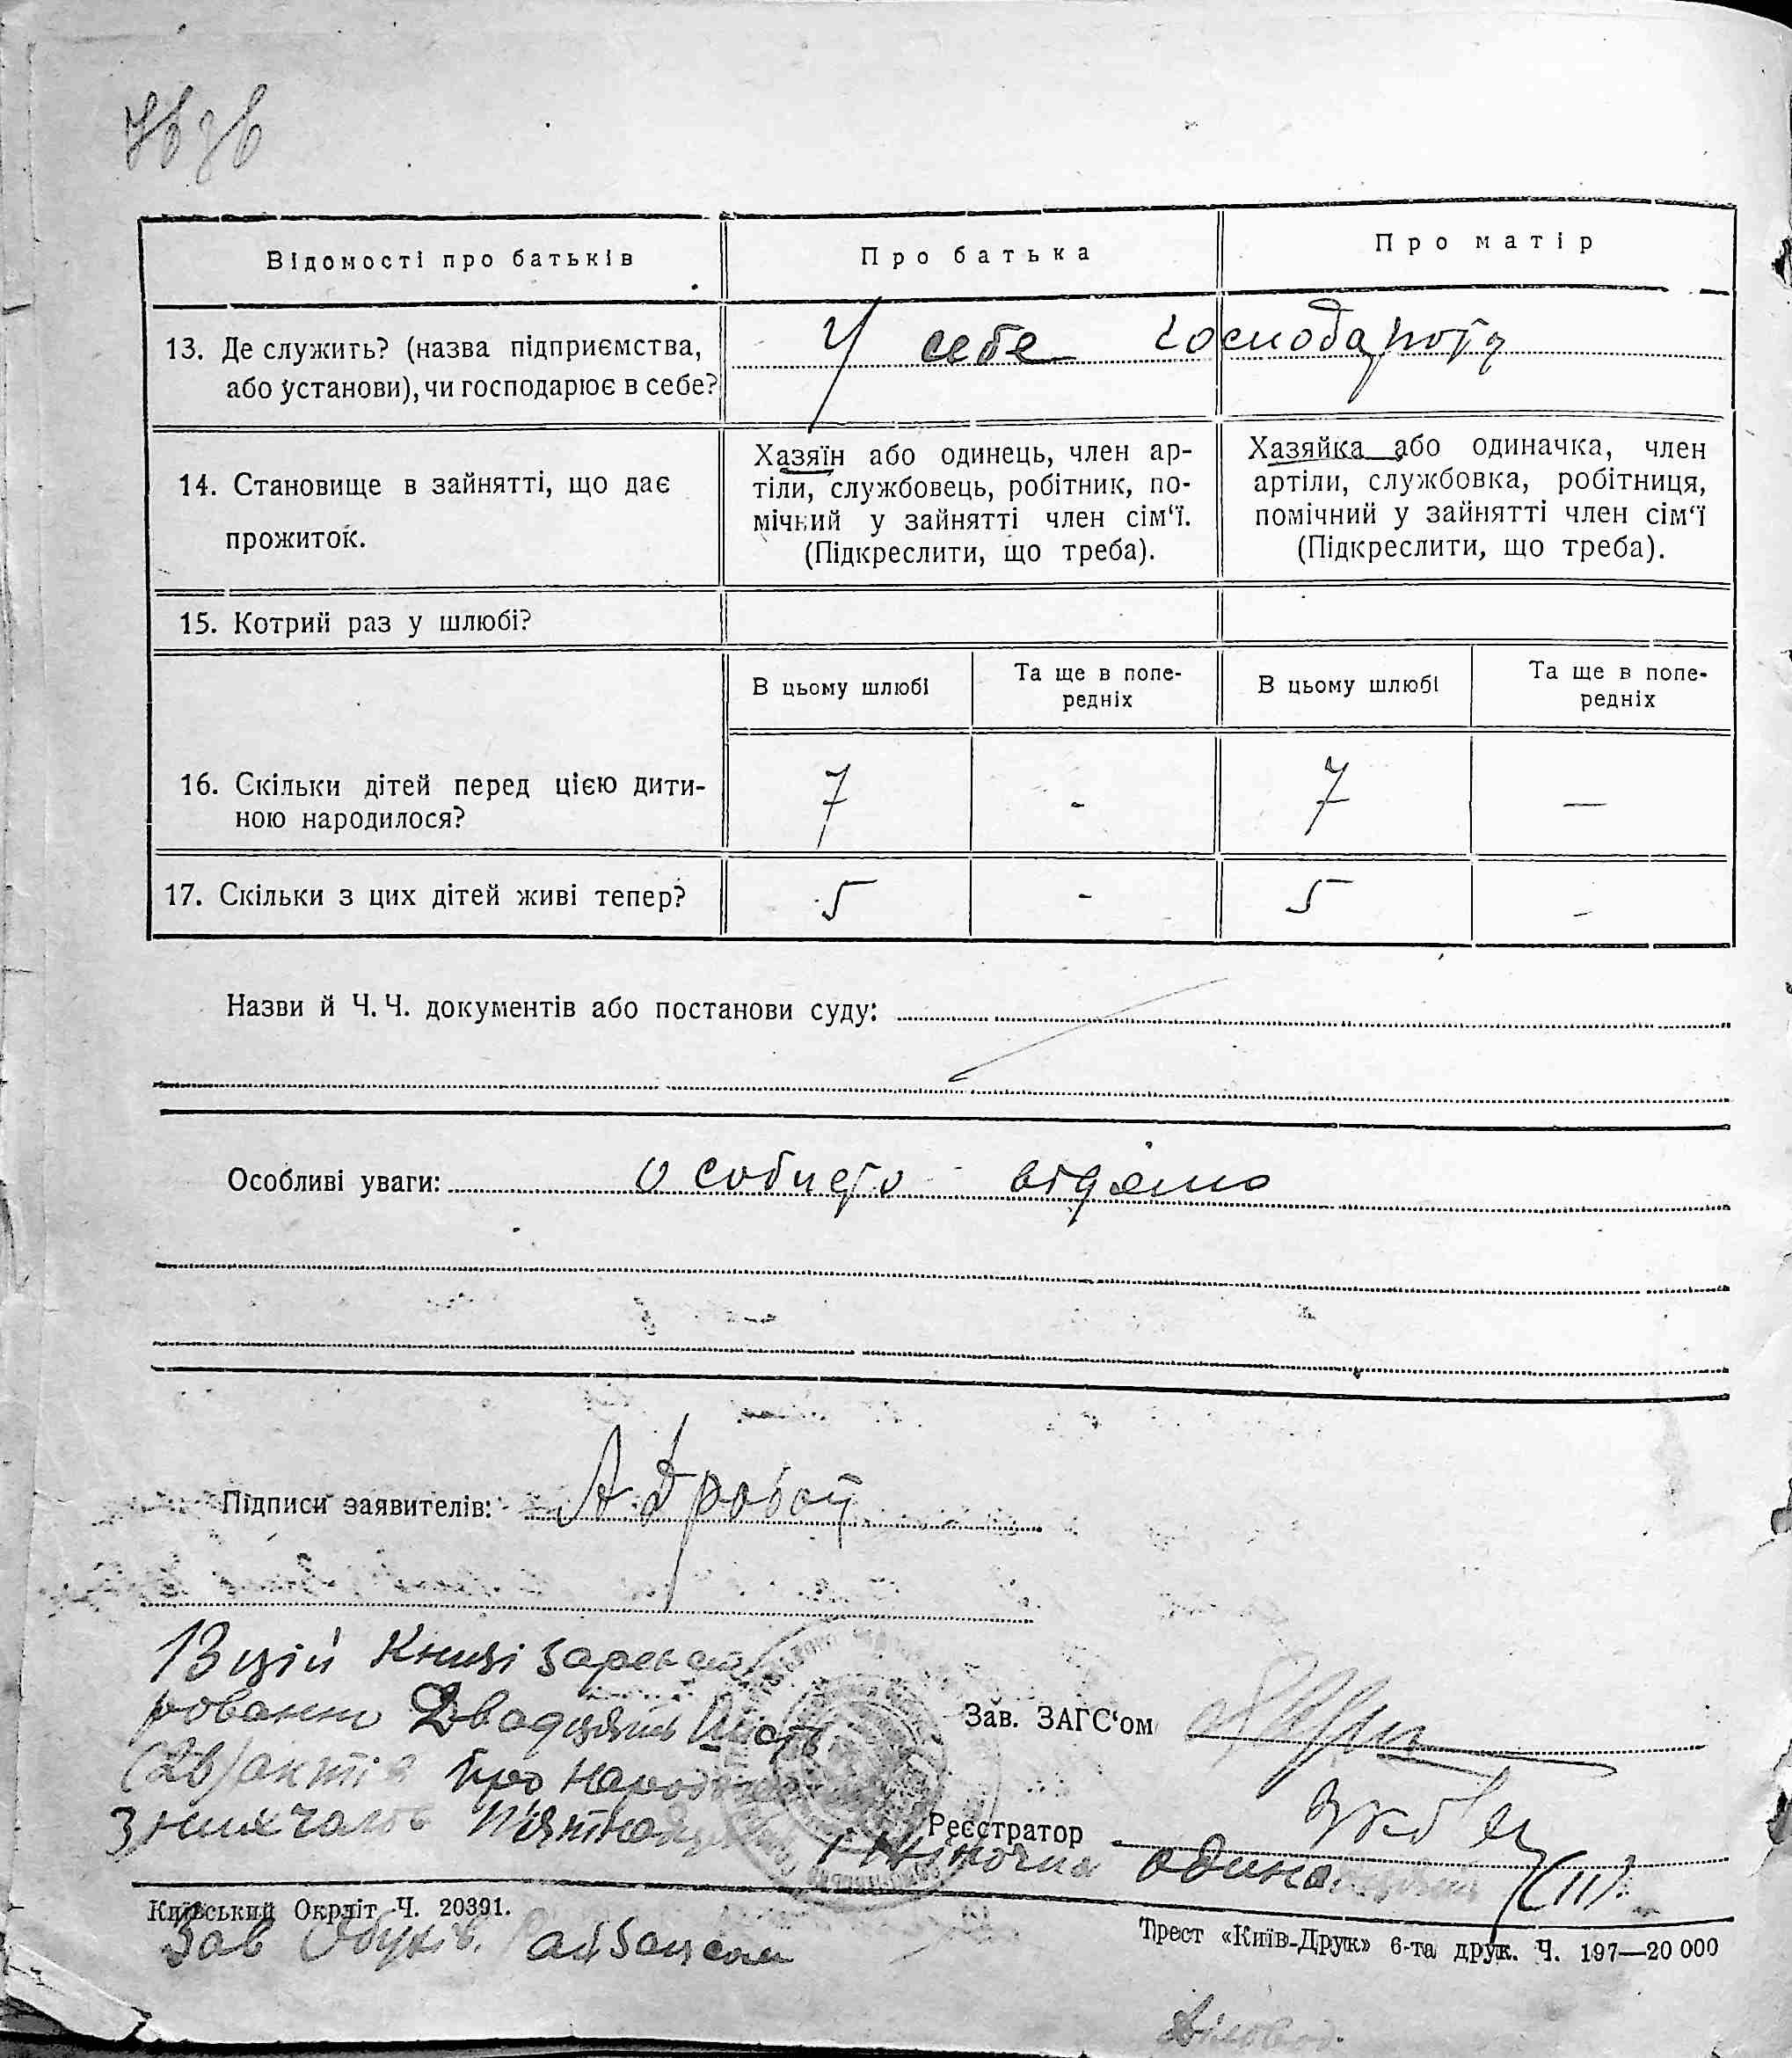 Відомості про батьків
Про батька
Про матір
13. Де служить? (назва підприємства,
або установи), чи господарює в себе?
У себе господарюють
14. Становище в зайнятті, що дає
прожиток.
Хазяїн або одинець, член ар-
тіли, службовець, робітник, по-
мічний у зайнятті член сім‘ї.
(Підкреслити, що треба).
Хазяйка або одиначка, член
артіли, службовка, робітниця,
помічний у зайнятті член сім‘ї
(Підкреслити, що треба).
15. Котрий раз у шлюбі?
В цьому шлюбі
Та ще в попе-
редніх
В цьому шлюбі
Та ще в попе-
редніх
16. Скільки дітей перед цією дити-
ною народилося?
7 - 7 —
17. Скільки з цих дітей живі тепер?
5 - 5 -
Назви й Ч. Ч. документів або постанови суду:
Особливі уваги: особисто відомо
Підписи заявителів:
В цій книзі зареєст
ровано Двадцять шість
(26) актів про народження
Зав. ЗАГС‘ом
з них чолов П'ятнадцять
Реєстратор
і жіноча одинадцять (11).
Київський Окрліт Ч. 20391.
Зав Обухів. Райзагсом
Трест «Київ-Друк» 6-та друк. Ч. 197—20 000
Діловод.